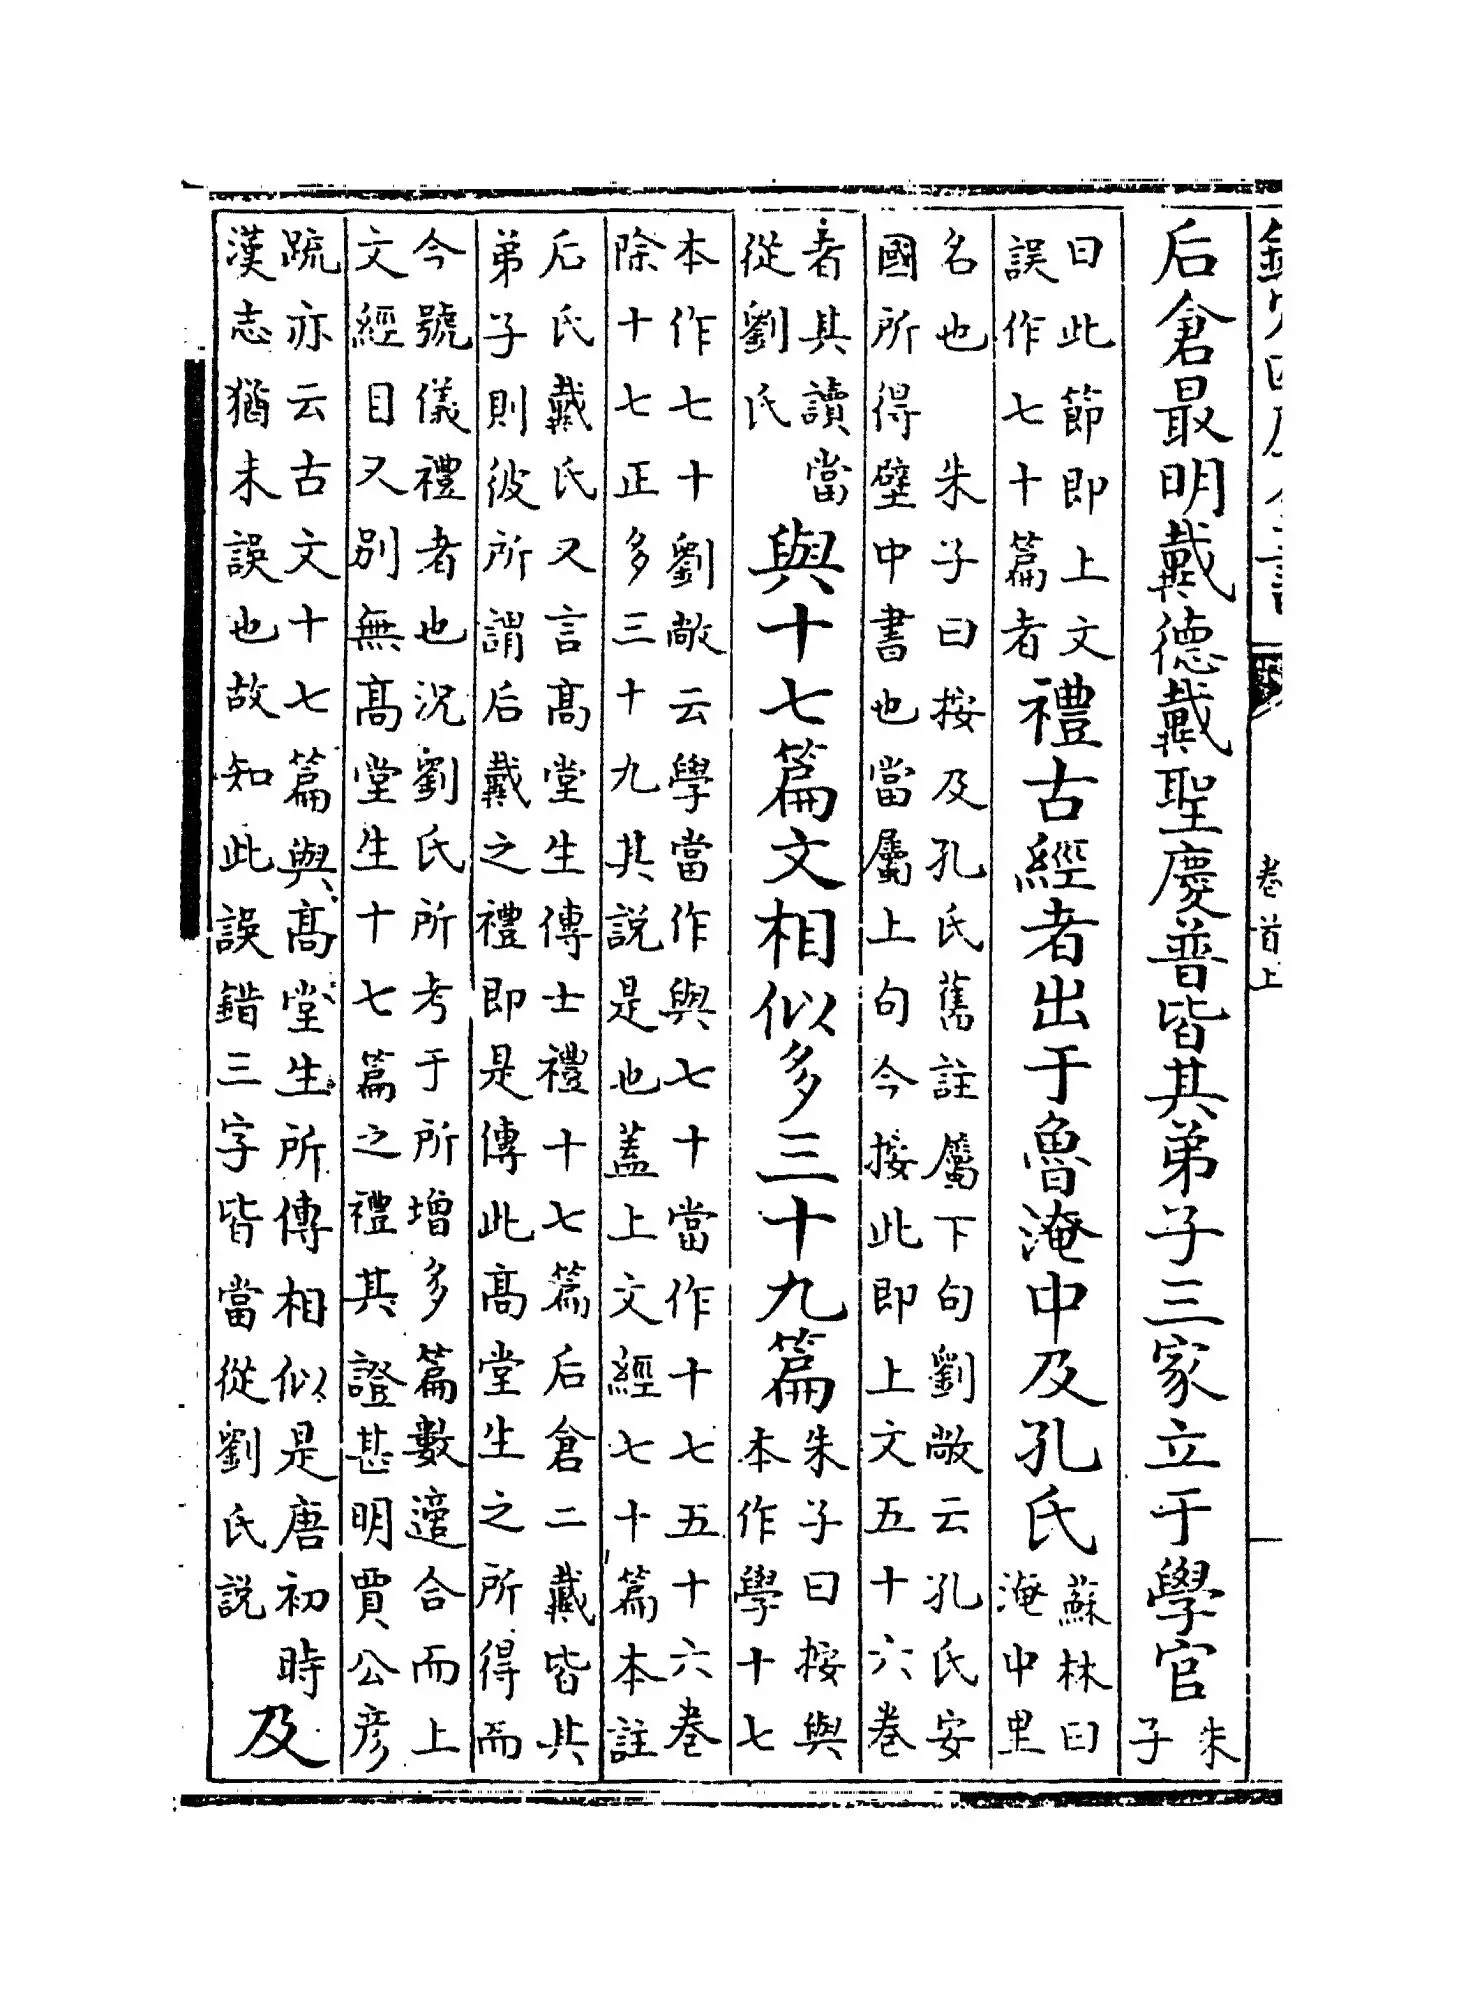 后倉最明戴德戴聖慶普皆其弟子三家立于學官朱
子
曰此節即上文
誤作七十篇者
禮古經者出于魯淹中及孔氏
蘇林曰
淹中里
名也　朱子曰按及孔氏舊註屬下句劉敞云孔氏安
國所得壁中書也當屬上句今按此即上文五十六卷
者其讀當
從劉氏
與十七篇文相似多三十九篇
朱子曰按與
本作學十七
本作七十劉敞云學當作與七十當作十七五十六卷
除十七正多三十九其說是也蓋上文經七十篇本註
后氏戴氏又言高堂生傳士禮十七篇后倉二戴皆其
弟子則彼所謂后戴之禮即是傳此高堂生之所得而
今號儀禮者也況劉氏所考于所增多篇數適合而上
文經目又別無高堂生十七篇之禮其證甚明賈公彥
疏亦云古文十七篇與高堂生所傳相似是唐初時
漢志猶未誤也故知此誤錯三字皆當從劉氏說
及
卷首上